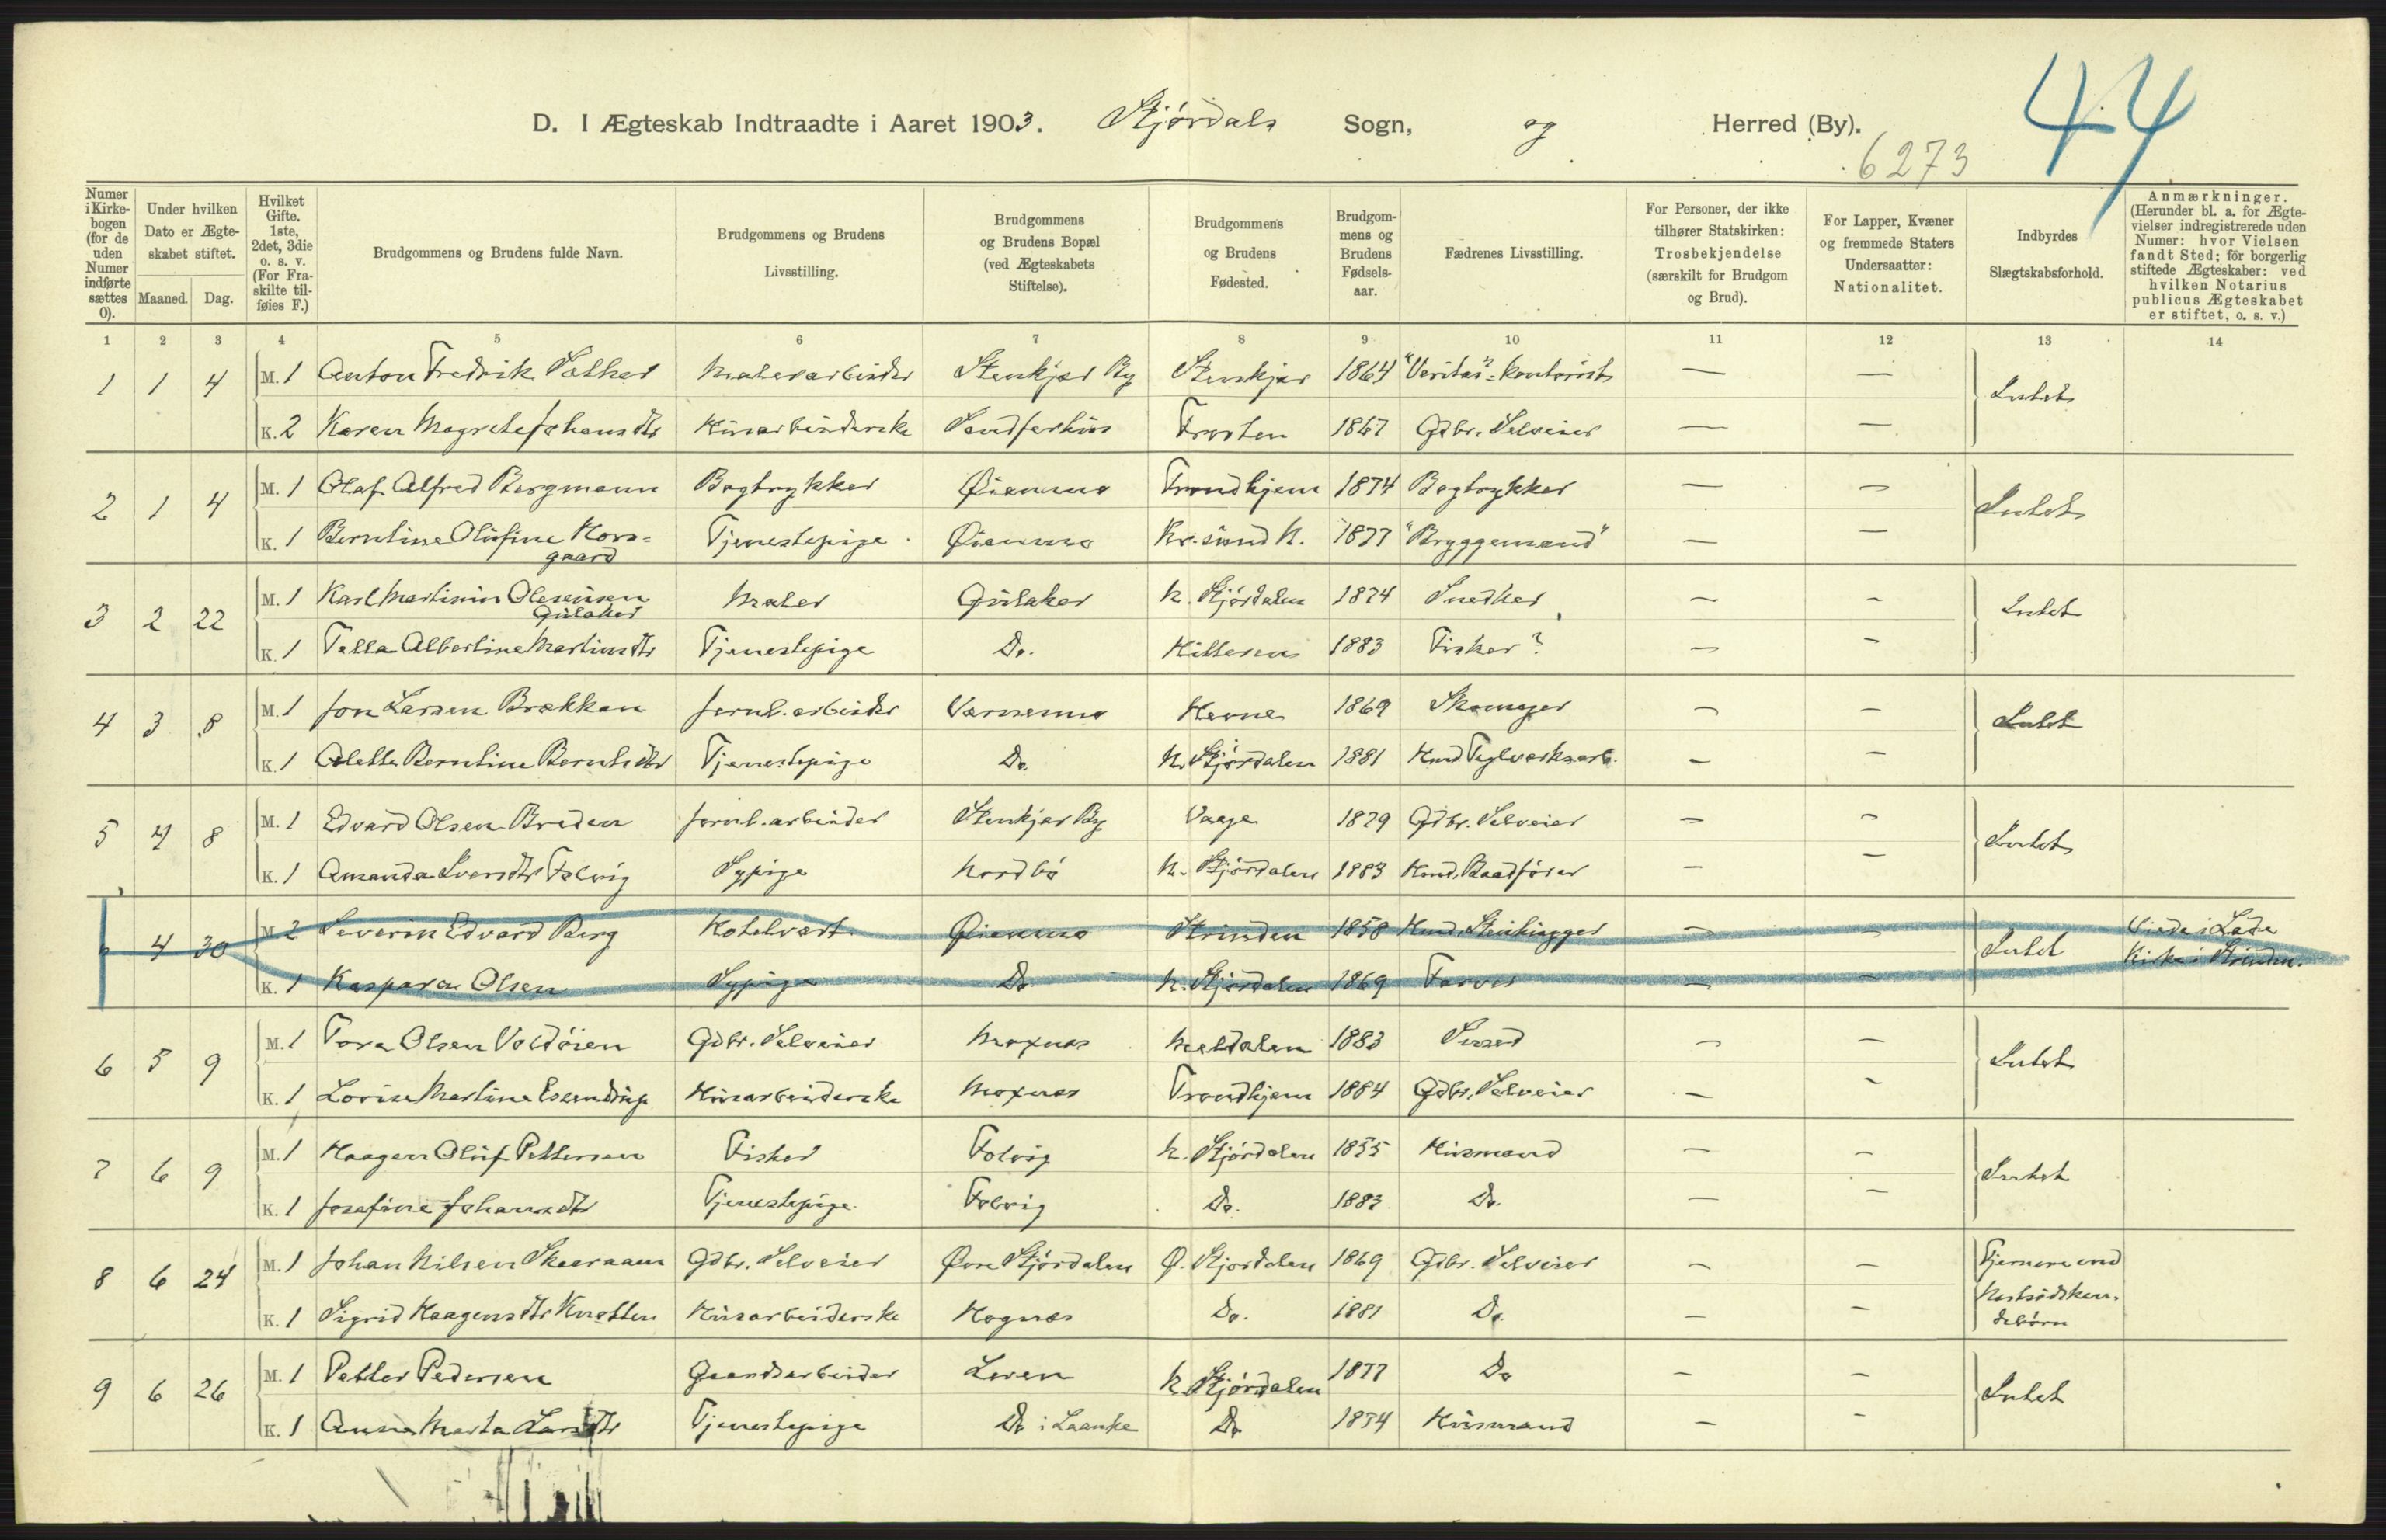 44
D. I Ægteskab Indtraadte i Aaret 1903. Stjørdals Sogn, og Herred (By).
6273
Numer i Kirkebogen (for de uden Numer indførte sættes 0). Under hvilken Dato er Ægteskabet stiftet. Maaned. Dag. Hvilket Gifte. 1ste, 2det, 3die o. s. v. (For Fraskilte tilføies F.) Brudgommens og Brudens fulde Navn. Brudgommens og Brudens Livsstilling. Brudgommens og Brudens Bopæl (ved Ægteskabets Stiftelse). Brudgommens og Brudens Fødested. Brudgommens og Brudens Fødselsaar. Fædrenes Livsstilling. For Personer, der ikke tilhører Statskirken: Trosbekjendelse (særskilt for Brudgom og Brud). For Lapper, Kvæner og fremmede Staters Undersaatter: Nationalitet. Indbyrdes Slægtskabsforhold. Anmærkninger. (Herunder bl. a. for Ægtevielser indregistrerede uden Numer: hvor Vielsen fandt Sted; for borgerlig stiftede Ægteskaber: ved hvilken Notarius publicus Ægteskabet er stiftet, o. s. v.)
1 2 3 4 5 6 7 8 9 10 11 12 13 14
1 1 4 M. 1 Anton Fredrik Sølher Malerarbeider Stenkjær By Stenkjær 1864 "Veritas"=kontorist — — Intet
K. 2 Karen Magrete Johansdtr Husarbeiderske Sandferhus Frosten 1867 Gdbr. Selveier — —
2 1 4 M. 1 Olaf Alfred Bergmann Bogtrykker Øianmo Trondhjem 1874 Bogtrykker — — Intet
K. 1 Berntine Olufine Kors=
gaard Tjenestepige Øianmo Kr.sund N. 1877 "Bryggemand" — —
3 2 22 M. 1 Karl Martinius Olausen
Gulaker Maler Gulaker N. Stjørdalen 1874 Snedker — — Intet
K. 1 Tella Albertine Martinsdtr Tjenestepige Do. Hitteren 1883 Fisker? — —
4 3 8 M. 1 Jon Larsen Brækken Jernb.arbeider Værnesmo Hevne 1869 Skomager — — Intet
K. 1 Olette Berntine Berntsdtr Tjenestepige Do. N. Stjørdalen 1881 Husmd Teglverksarb. — —
5 4 8 M. 1 Edvard Olsen Breden Jernb.arbeider Stenkjær By Vaage 1879 Gdbr. Selveier — — Intet
K. 1 Amanda Iversdtr Folvig Sypige Nordbø N. Stjørdalen 1883 Husmd. Baadfører — —
4 30 M. 2 Severin Edvard Berg Hotelvært Øianmo Strinden 1858 Husmd. Stenhugger — — Intet Viede i Lade
K. 1 Kasparæ Olsen Sypige Do N. Stjørdalen 1869 Garver — — Kirke i Strinden.
6 5 9 M. 1 Tore Olsen Voldøien Gdbr. Selveier Moxnes Meldalen 1883 Smed — — Intet
K. 1 Lovise Martine Husarbeiderske Moxnes Trondhjem 1884 Gdbr. Selveier — —
7 6 9 M. 1 Haagen Oluf Pettersen Fisker Folvig N. Stjørdalen 1855 Husmand — — Intet
K. 1 Josefine Johansdtr Tjenestepige Folvig Do. 1883 Do. — —
8 6 24 M. 1 Johan Nilsen Skearaaen Gdbr. Selveier Øvre Stjørdalen Ø. Stjørdalen 1869 Gdbr. Selveier — — Fjernere end
K. 1 Sigrid Haagensdtr Knotten Husarbeiderske Hognes Do. 1881 Do. — — Næstsødsken=
debørn
9 6 26 M. 1 Petter Pedersen Grændsarbeider Leren N. Stjørdalen 1877 Do — — Intet
K. 1 Anna Marta Larsdtr Tjenestepige Do i Laanke Do 1874 Husmand — —